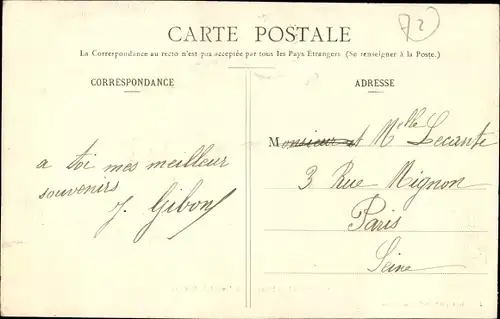 CARTE POSTALE
72
La Correspondance au recto n'est pas acceptée par tous les Pays Étrangers. (Se renseigner à la Poste.)
CORRESPONDANCE
ADRESSE
a toi mes meilleur
souvenirs
J. Gibon
Monsieur et Melle Lecante
3 Rue Mignon
Paris
Seine